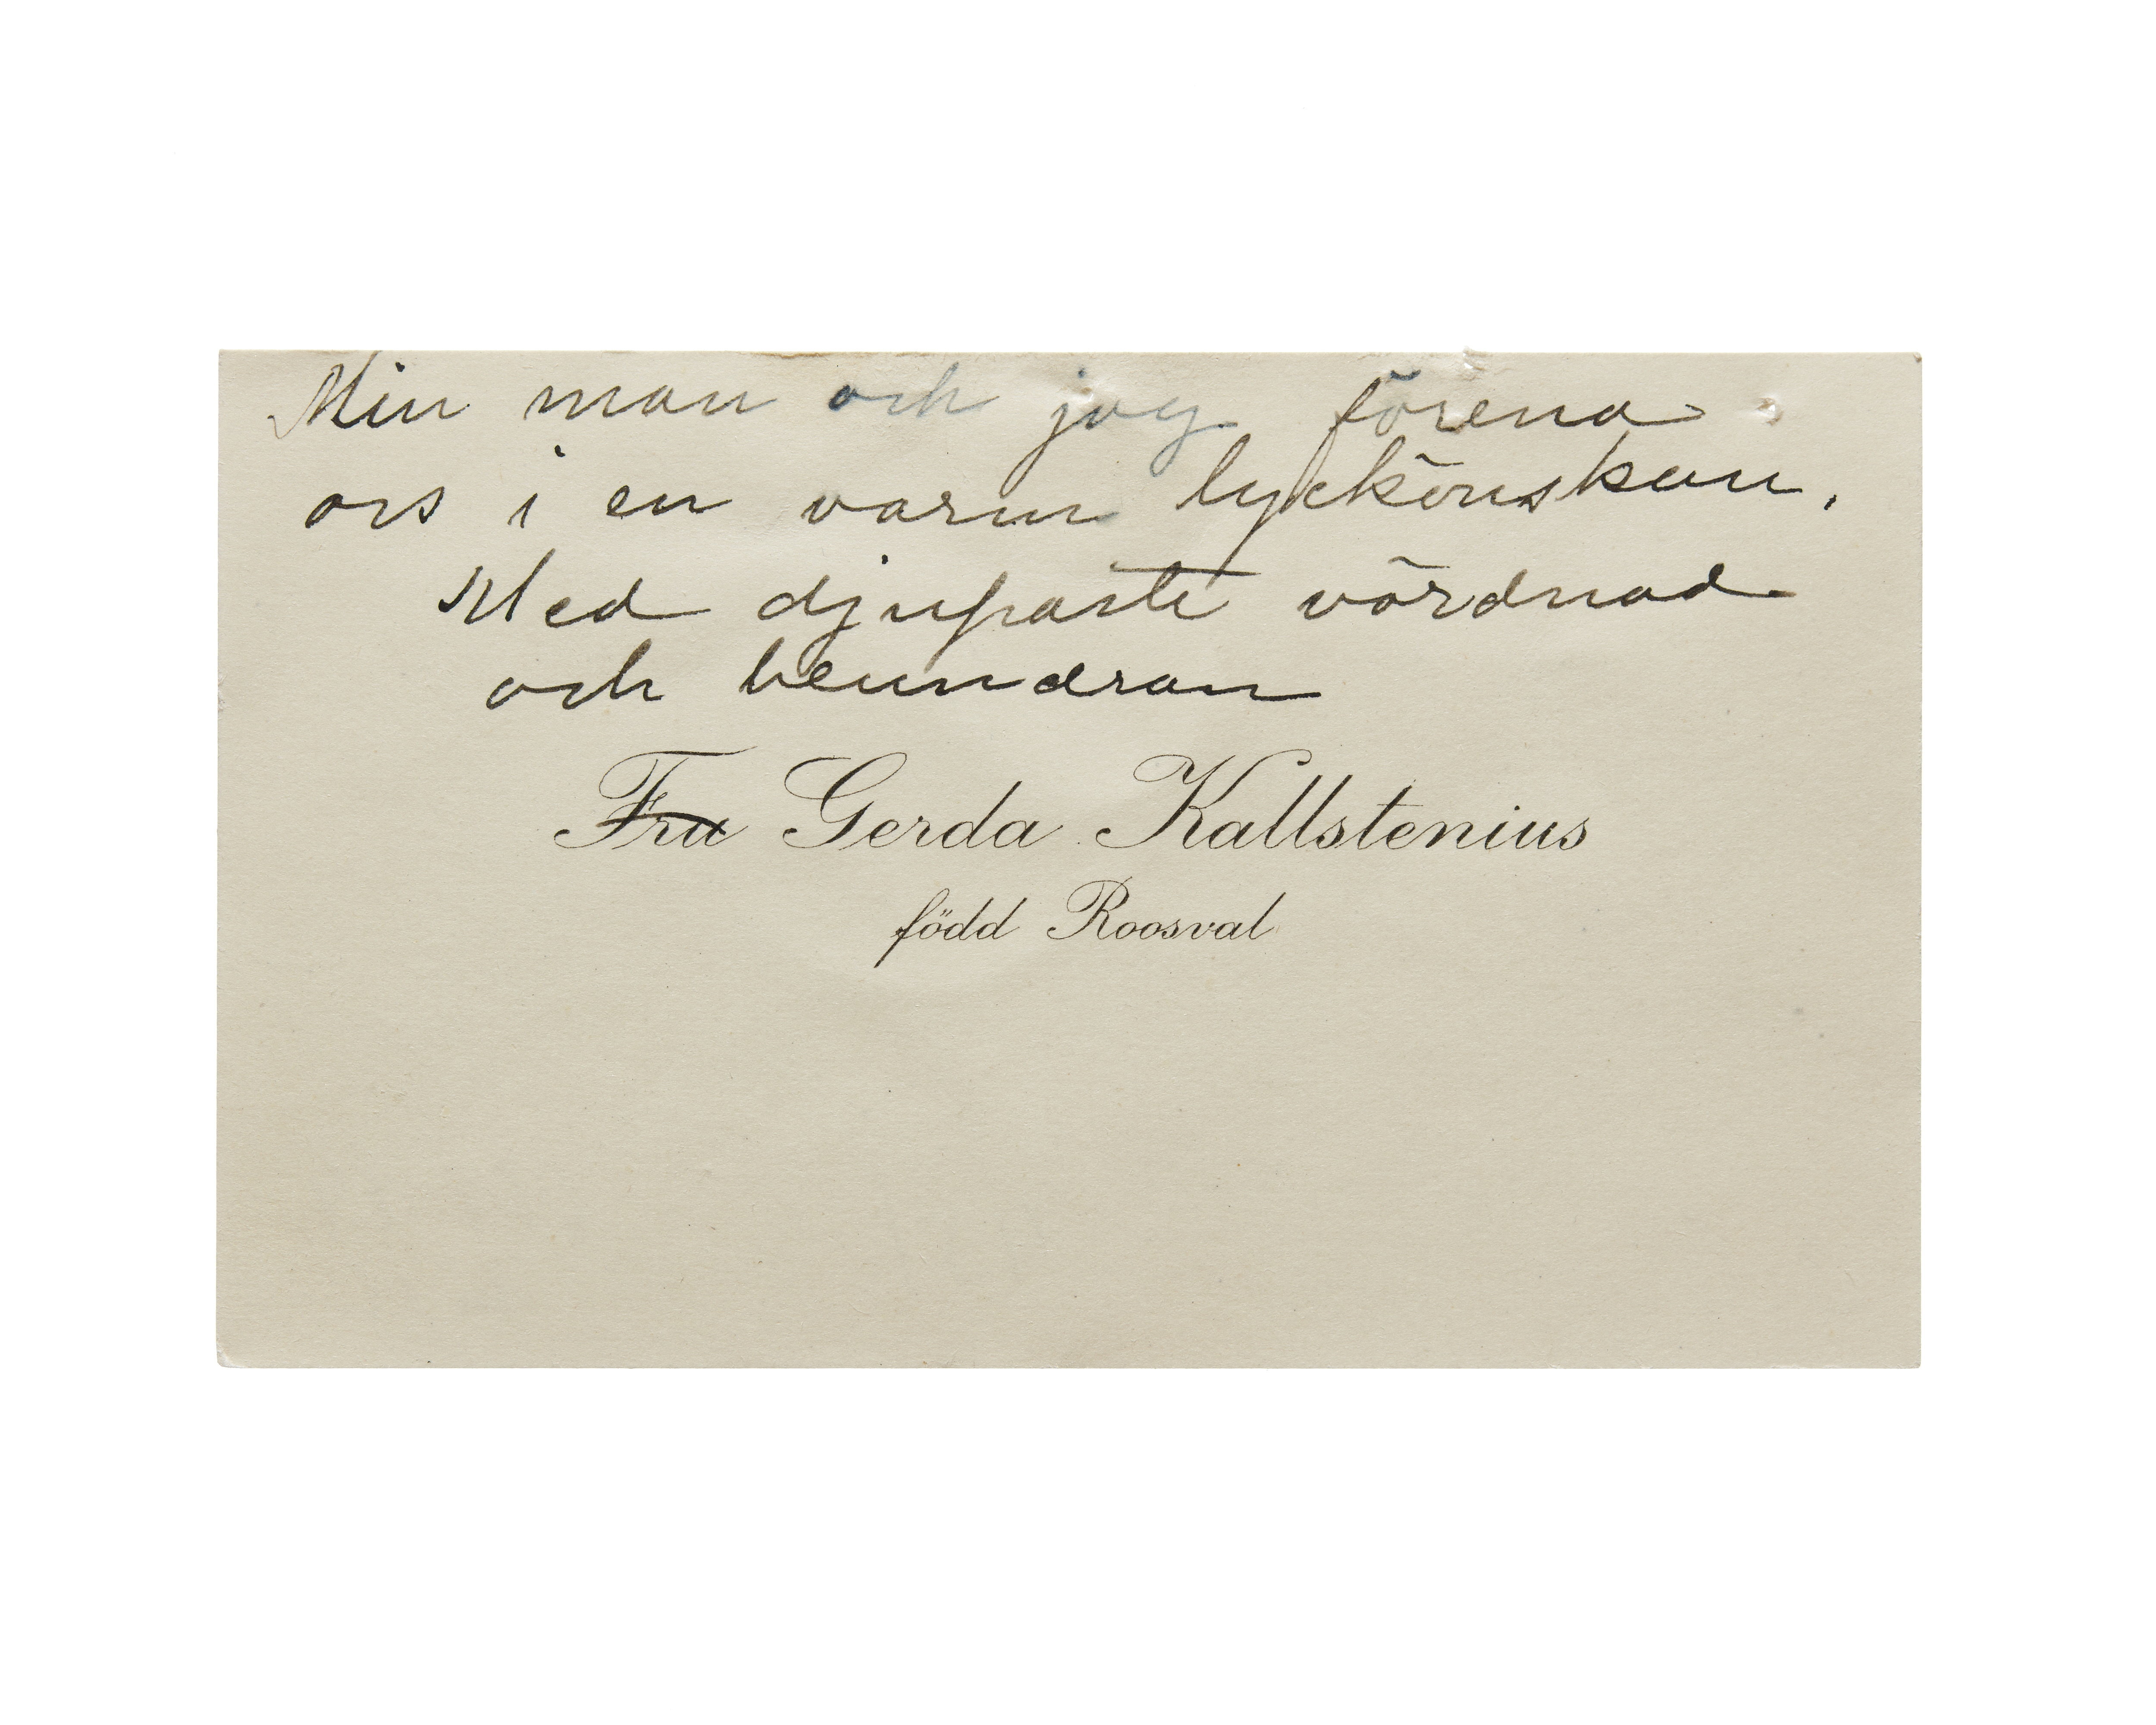 Min man och jag förena
oss i en varm lyckönskan.
Med djupaste vördnad
och beundran
Fru Gerda Kallstenius
född Roosval